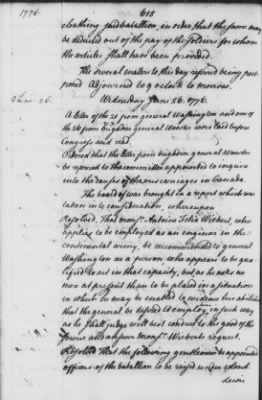 1776. 618
cloathing said battalion, in order, that the same may
be deducted out of the pay of the soldiers for whom
the articles shall have been provided.
The several matters to this day referred being post
poned Adjourned to 9 oClock to morrow.
June 26. Wednesday June 26. 1776.
A letter of the 25 from general Washington and one of
the 26 from brigadier general Wooster were laid before
Congress and read.
Ordered that the letter from brigadier general Wooster
be referred to the committee appointed to enquire
into the causes of the miscarriages in Canada.
The board of war brought in a report which was
taken in to consideration, whereupon
Resolved, That monsr Antoine Felix Wiebert, who
applies to be employed as an engineer in the
continental army, be recommended to general
Washington as a person who appears to be qua
lified to act in that capacity, but as he asks no
more at present than to be placed in a situation
in which he may be enabled to evidence his abilities
that the general be desired to employ, in such way
as he shall judge will best conduce to the good of the
service and answer monsr Wiebert's request.
Resolved That the following gentlemen be appointed
officers of the batallion to be raised under colonel